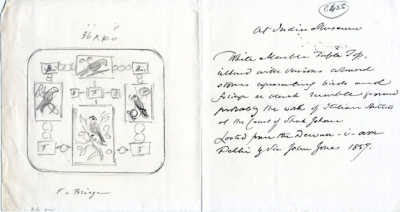 " "
36 x 40
F
F
F
F
F = Foliage
C425
At India Museum
White Marble Table Top,
inlaid with various coloured
stones representing birds and
foliage on black marble ground
probably the work of Italian Artists
at the Court of Shah Jehan
Looted from the Dewan-i-am
Delhi by Sir John Jones 1857.